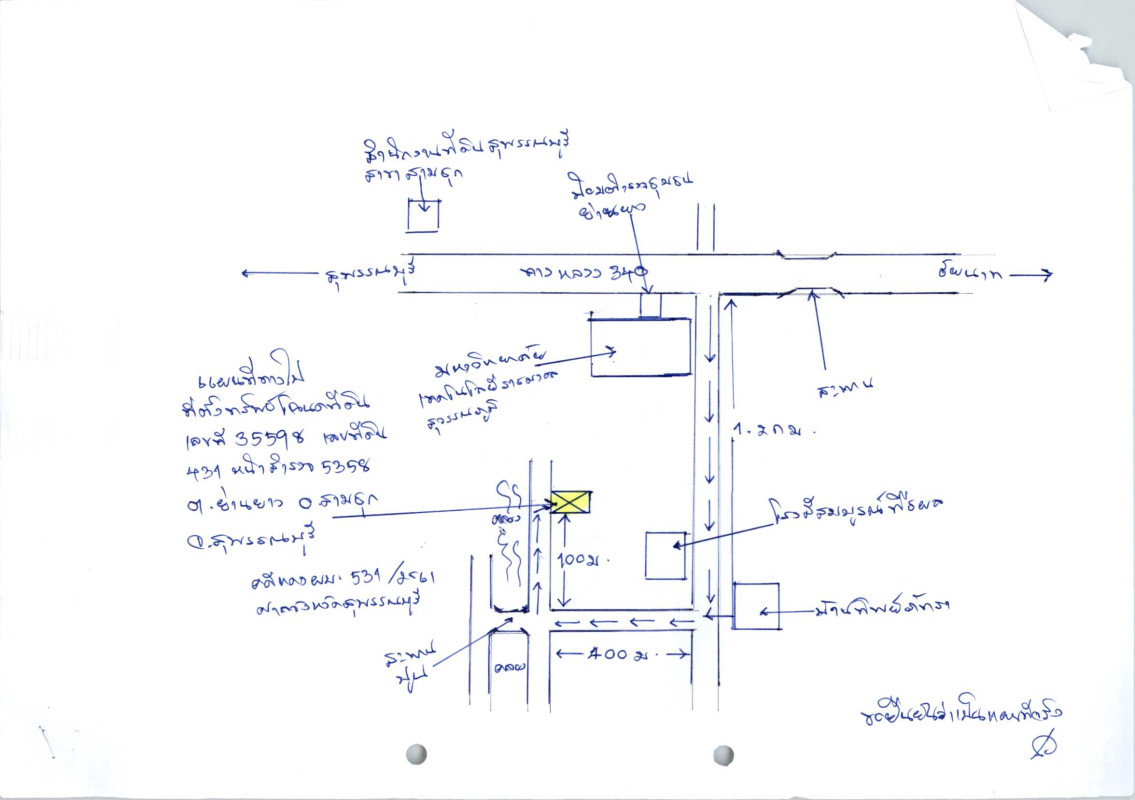 สำนักงานที่ดินสุพรรณบุรี
สาขาสามชุก
ป้อมตำรวจชุมชน
ย่านยาว
สุพรรณบุรี
ทางหลวง 340
ชัยนาท
สะพาน
มหาวิทยาลัย
เทคโนโลยีราชมงคล
สุวรรณภูมิ
แผนที่ทางไป
ที่ตั้งทรัพย์โฉนดที่ดิน
เลขที่ 35598 เลขที่ดิน
431 หน้าสำรวจ 5358
ต.ย่านยาว อ.สามชุก
จ.สุพรรณบุรี
คดีหมายเลข ผบ. 531/2561
ศาลจังหวัดสุพรรณบุรี
1.2 กม.
คลอง
100 ม.
โรงสีสมบูรณ์พืชผล
บ้านทิพย์ภัทรา
สะพาน
ปูน
คลอง
400 ม.
ขอยืนยันว่าเป็นทางที่จริง